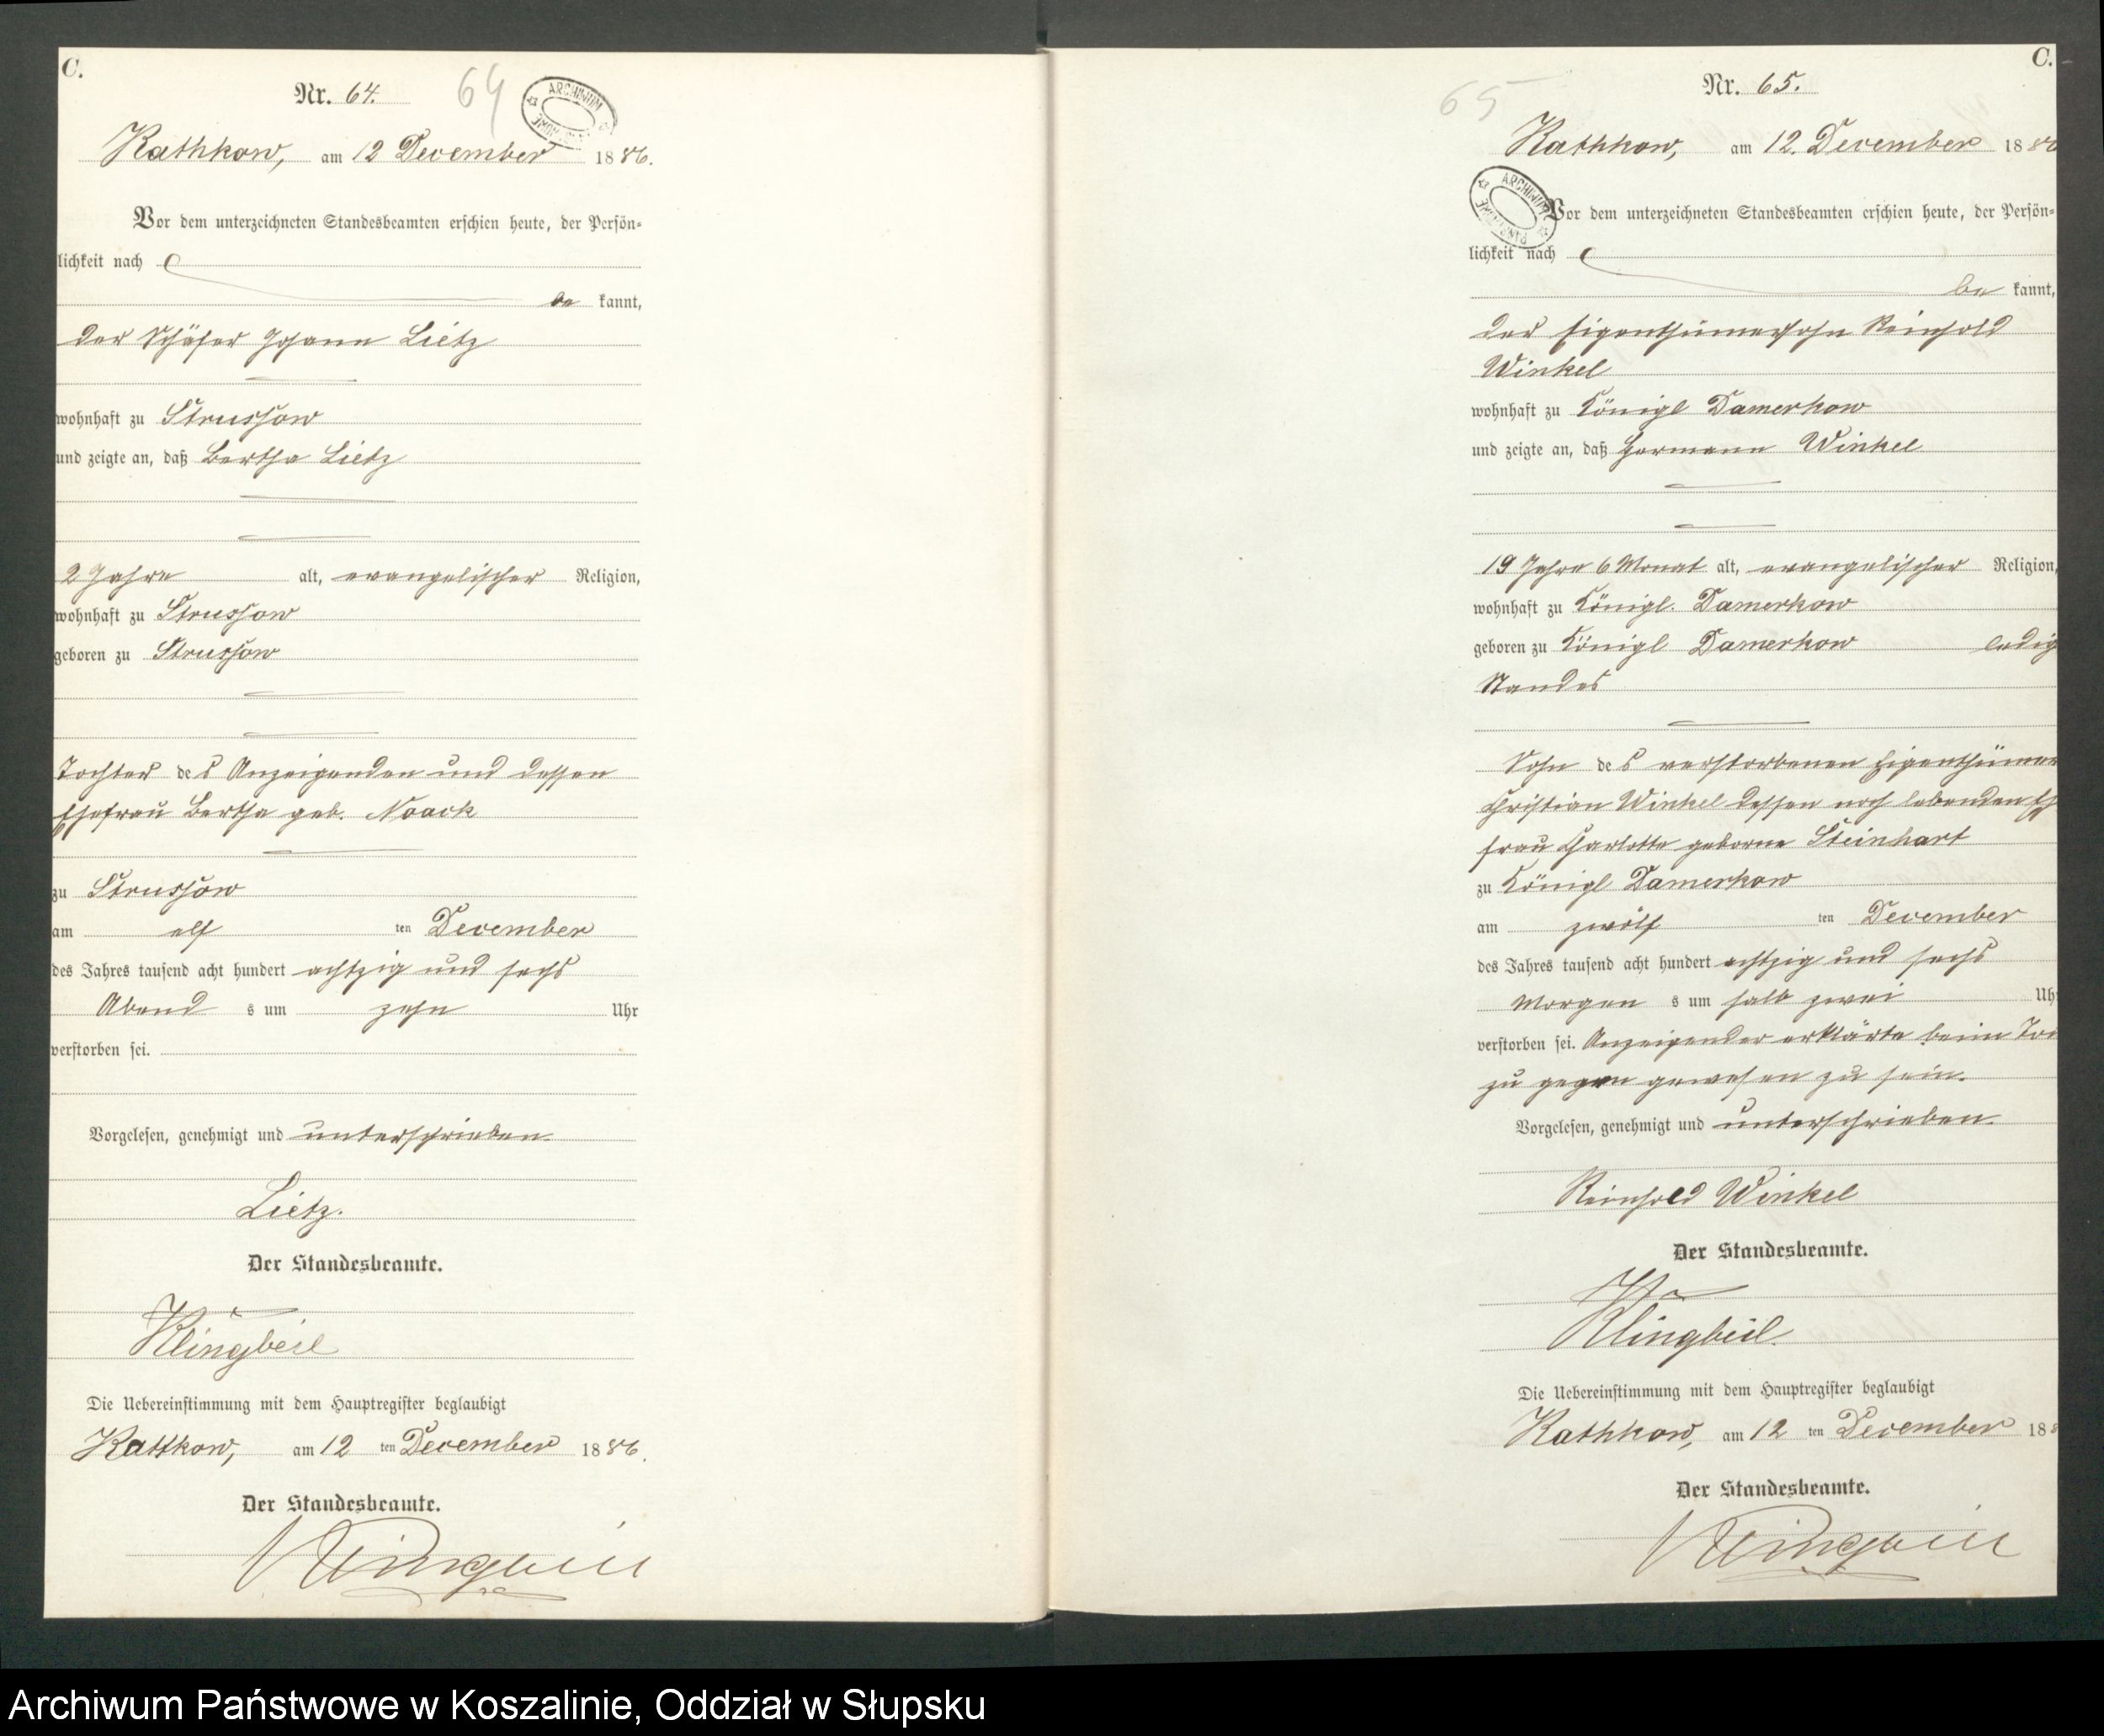 C.
Nr. 64.
64
ARCHIWUM
Rathkow, am 12 December 1886.
Vor dem unterzeichneten Standesbeamten erschien heute, der Persön-
lichkeit nach
be kannt,
der Schäfer Johann Lietz
wohnhaft zu Strussow
und zeigte an, daß Bertha Lietz
2 Jahre alt, evangelischer Religion,
wohnhaft zu Strussow
geboren zu Strussow
Tochter des Anzeigenden und dessen
Ehefrau Bertha geb. Noack
zu Strussow
am elf ten December
des Jahres tausend acht hundert achtzig und sechs
Abend s um zehn Uhr
verstorben sei.
Vorgelesen, genehmigt und unterschrieben
Lietz.
Der Standesbeamte.
Klingbeil
Die Uebereinstimmung mit dem Hauptregister beglaubigt
Rathkow, am 12 ten December 1886.
Der Standesbeamte.
Klingbeil
C.
Nr. 65.
65
Rathkow, am 12. December 188
ARCHIWUM
Vor dem unterzeichneten Standesbeamten erschien heute, der Persön-
lichkeit nach
be kannt,
der Eigenthümersohn Reinhold
Winkel
wohnhaft zu Königl Damerkow
und zeigte an, daß Hermann Winkel
19 Jahre 6 Monat alt, evangelischer Religion,
wohnhaft zu Königl. Damerkow
geboren zu Königl Damerkow ledig
Standes
Sohn des verstorbenen Eigenthümer
Christian Winkel dessen noch lebenden Eh
frau Charlotte geborne Steinhart
zu Königl Damerkow
am zwölf ten December
des Jahres tausend acht hundert achtzig und sechs
Morgen s um halb zwei Uh
verstorben sei. Anzeigender erklärte beim To
zu gegen gewesen zu sein.
Vorgelesen, genehmigt und unterschrieben
Reinhold Winkel
Der Standesbeamte.
Klingbeil.
Die Uebereinstimmung mit dem Hauptregister beglaubigt
Rathkow, am 12 ten December 18
Der Standesbeamte.
Klingbeil
Archiwum Państwowe w Koszalinie, Oddział w Słupsku